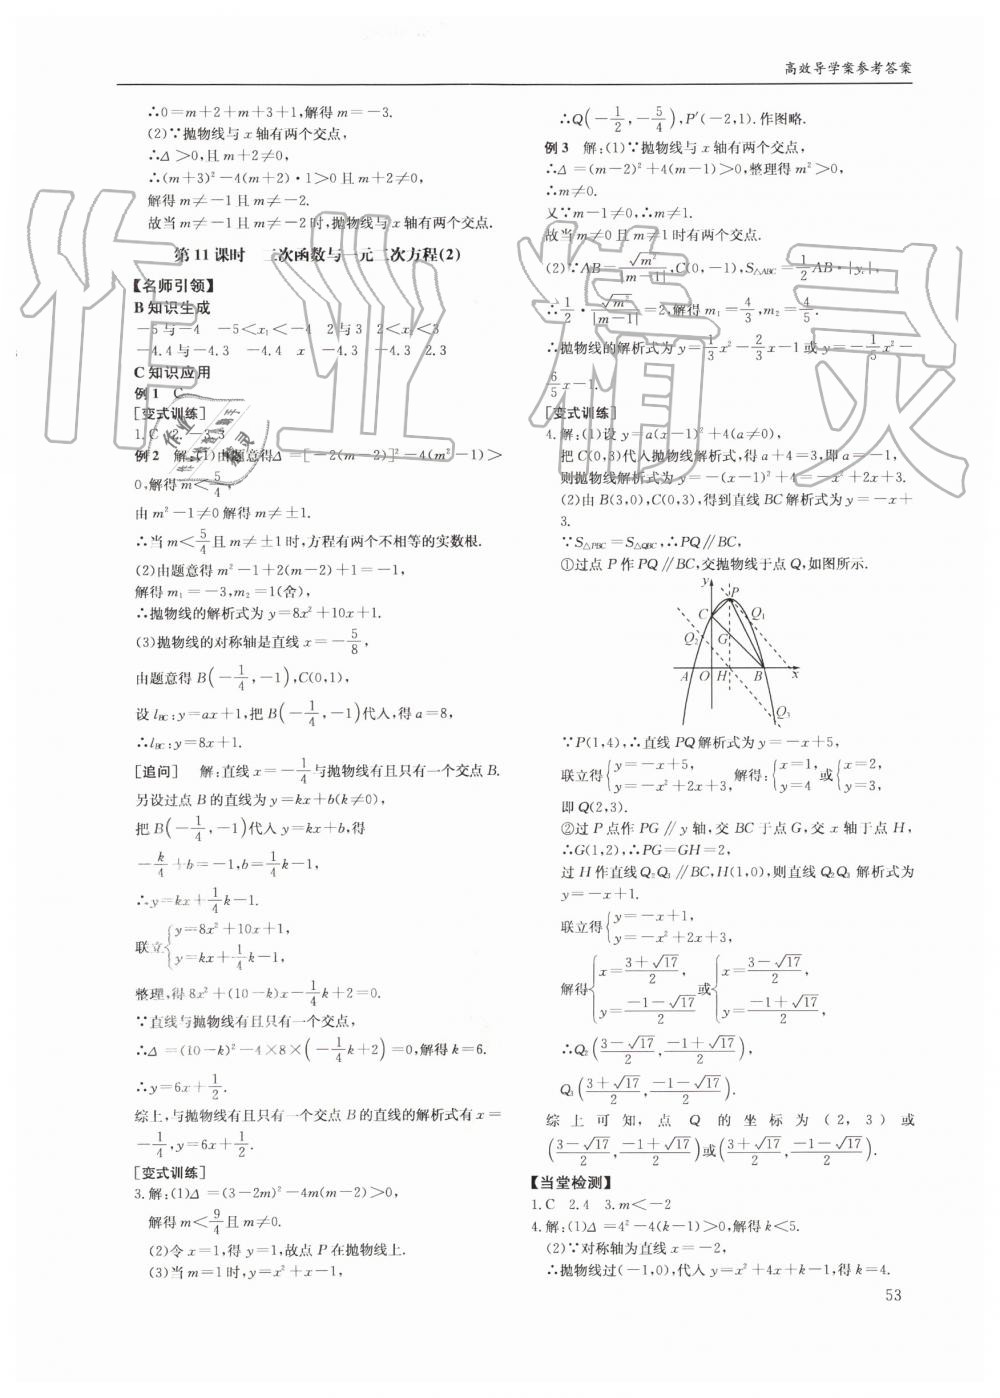 高效导学案参考答案
∴0=m+2+m+3+1,解得m=-3.
(2)∵抛物线与x轴有两个交点,
∴Δ>0,且m+2≠0,
∴(m+3)²-4(m+2)·1>0且m+2≠0,
解得m≠-1且m≠-2.
故当m≠-1且m≠-2时,抛物线与x轴有两个交点.
第11课时 二次函数与一元二次方程(2)
【名师引领】
B知识生成
-5与-4 -5<x₁<-4 2与3 2<x₂<3
-4.4与-4.3 -4.4 x -4.3 -4.3 2.3
C知识应用
例1 C
[变式训练]
1.C 2.-3.3
例2 解:(1)由题意得Δ=[-2(m-2)]²-4(m²-1)>
0,解得m<5/4,
由m²-1≠0解得m≠±1.
∴当m<5/4且m≠±1时,方程有两个不相等的实数根.
(2)由题意得m²-1+2(m-2)+1=-1,
解得m₁=-3,m₂=1(舍),
∴抛物线的解析式为y=8x²+10x+1.
(3)抛物线的对称轴是直线x=-5/8,
由题意得B(-1/4,-1),C(0,1),
设l_BC:y=ax+1,把B(-1/4,-1)代入,得a=8,
∴l_BC:y=8x+1.
[追问] 解:直线x=-1/4与抛物线有且只有一个交点B.
另设过点B的直线为y=kx+b(k≠0),
把B(-1/4,-1)代入y=kx+b,得
-k/4+b=-1,b=1/4k-1,
∴y=kx+1/4k-1.
联立{y=8x²+10x+1,
y=kx+1/4k-1,
整理,得8x²+(10-k)x-1/4k+2=0.
∵直线与抛物线有且只有一个交点,
∴Δ=(10-k)²-4×8×(-1/4k+2)=0,解得k=6.
∴y=6x+1/2.
综上,与抛物线有且只有一个交点B的直线的解析式有x=
-1/4,y=6x+1/2.
[变式训练]
3.解:(1)Δ=(3-2m)²-4m(m-2)>0,
解得m<9/4且m≠0.
(2)令x=1,得y=1,故点P在抛物线上.
(3)当m=1时,y=x²+x-1,
∴Q(-1/2,-5/4),P′(-2,1).作图略.
例3 解:(1)∵抛物线与x轴有两个交点,
∴Δ=(m-2)²+4(m-1)>0,整理得m²>0,
∴m≠0.
又∵m-1≠0,∴m≠1.
故当m≠0且m≠1时有两个交点.
(2)∵AB=√m²/|m-1|,C(0,-1),S△ABC=1/2AB·|yc|,
∴1/2·√m²/|m-1|=2,解得m₁=4/3,m₂=4/5.
∴抛物线的解析式为y=1/3x²-2/3x-1或y=-1/5x²-
6/5x-1.
[变式训练]
4.解:(1)设y=a(x-1)²+4(a≠0),
把C(0,3)代入抛物线解析式,得a+4=3,即a=-1,
则抛物线解析式为y=-(x-1)²+4=-x²+2x+3.
(2)由B(3,0),C(0,3),得到直线BC解析式为y=-x+
3.
∵S△PBC=S△QBC,∴PQ∥BC,
①过点P作PQ∥BC,交抛物线于点Q,如图所示.
y
P
C
Q₁
Q₂
G
A O H B x
Q₃
∵P(1,4),∴直线PQ解析式为y=-x+5,
联立得{y=-x+5,
y=-x²+2x+3,
解得:{x=1,
y=4
或{x=2,
y=3,
即Q(2,3).
②过P点作PG∥y轴,交BC于点G,交x轴于点H,
∴G(1,2),∴PG=GH=2,
过H作直线Q₂Q₃∥BC,H(1,0),则直线Q₂Q₃解析式为
y=-x+1.
联立得{y=-x+1,
y=-x²+2x+3,
解得{x=(3+√17)/2,
y=(-1-√17)/2
或{x=(3-√17)/2,
y=(-1+√17)/2,
∴Q₂((3-√17)/2,(-1+√17)/2),
Q₃((3+√17)/2,(-1-√17)/2).
综上可知,点Q的坐标为(2,3)或
((3-√17)/2,(-1+√17)/2)或((3+√17)/2,(-1-√17)/2).
【当堂检测】
1.C 2.4 3.m<-2
4.解:(1)Δ=4²-4(k-1)>0,解得k<5.
(2)∵对称轴为直线x=-2,
∴抛物线过(-1,0),代入y=x²+4x+k-1,得k=4.
53
作业精灵